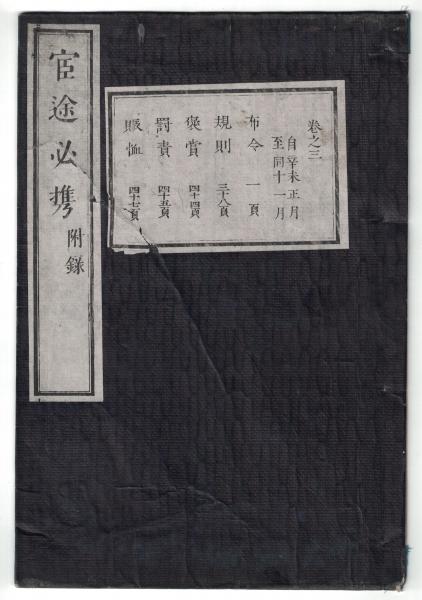 宦途必携
附録
巻之三
自辛未正月
至同十一月
布令 一頁
規則 三十八頁
褒賞 四十四頁
罰責 四十五頁
賑恤 四十七頁